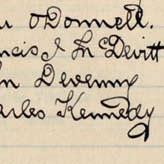 O'Donnell.
ncis J McDevitt
n Devenny
arles Kennedy